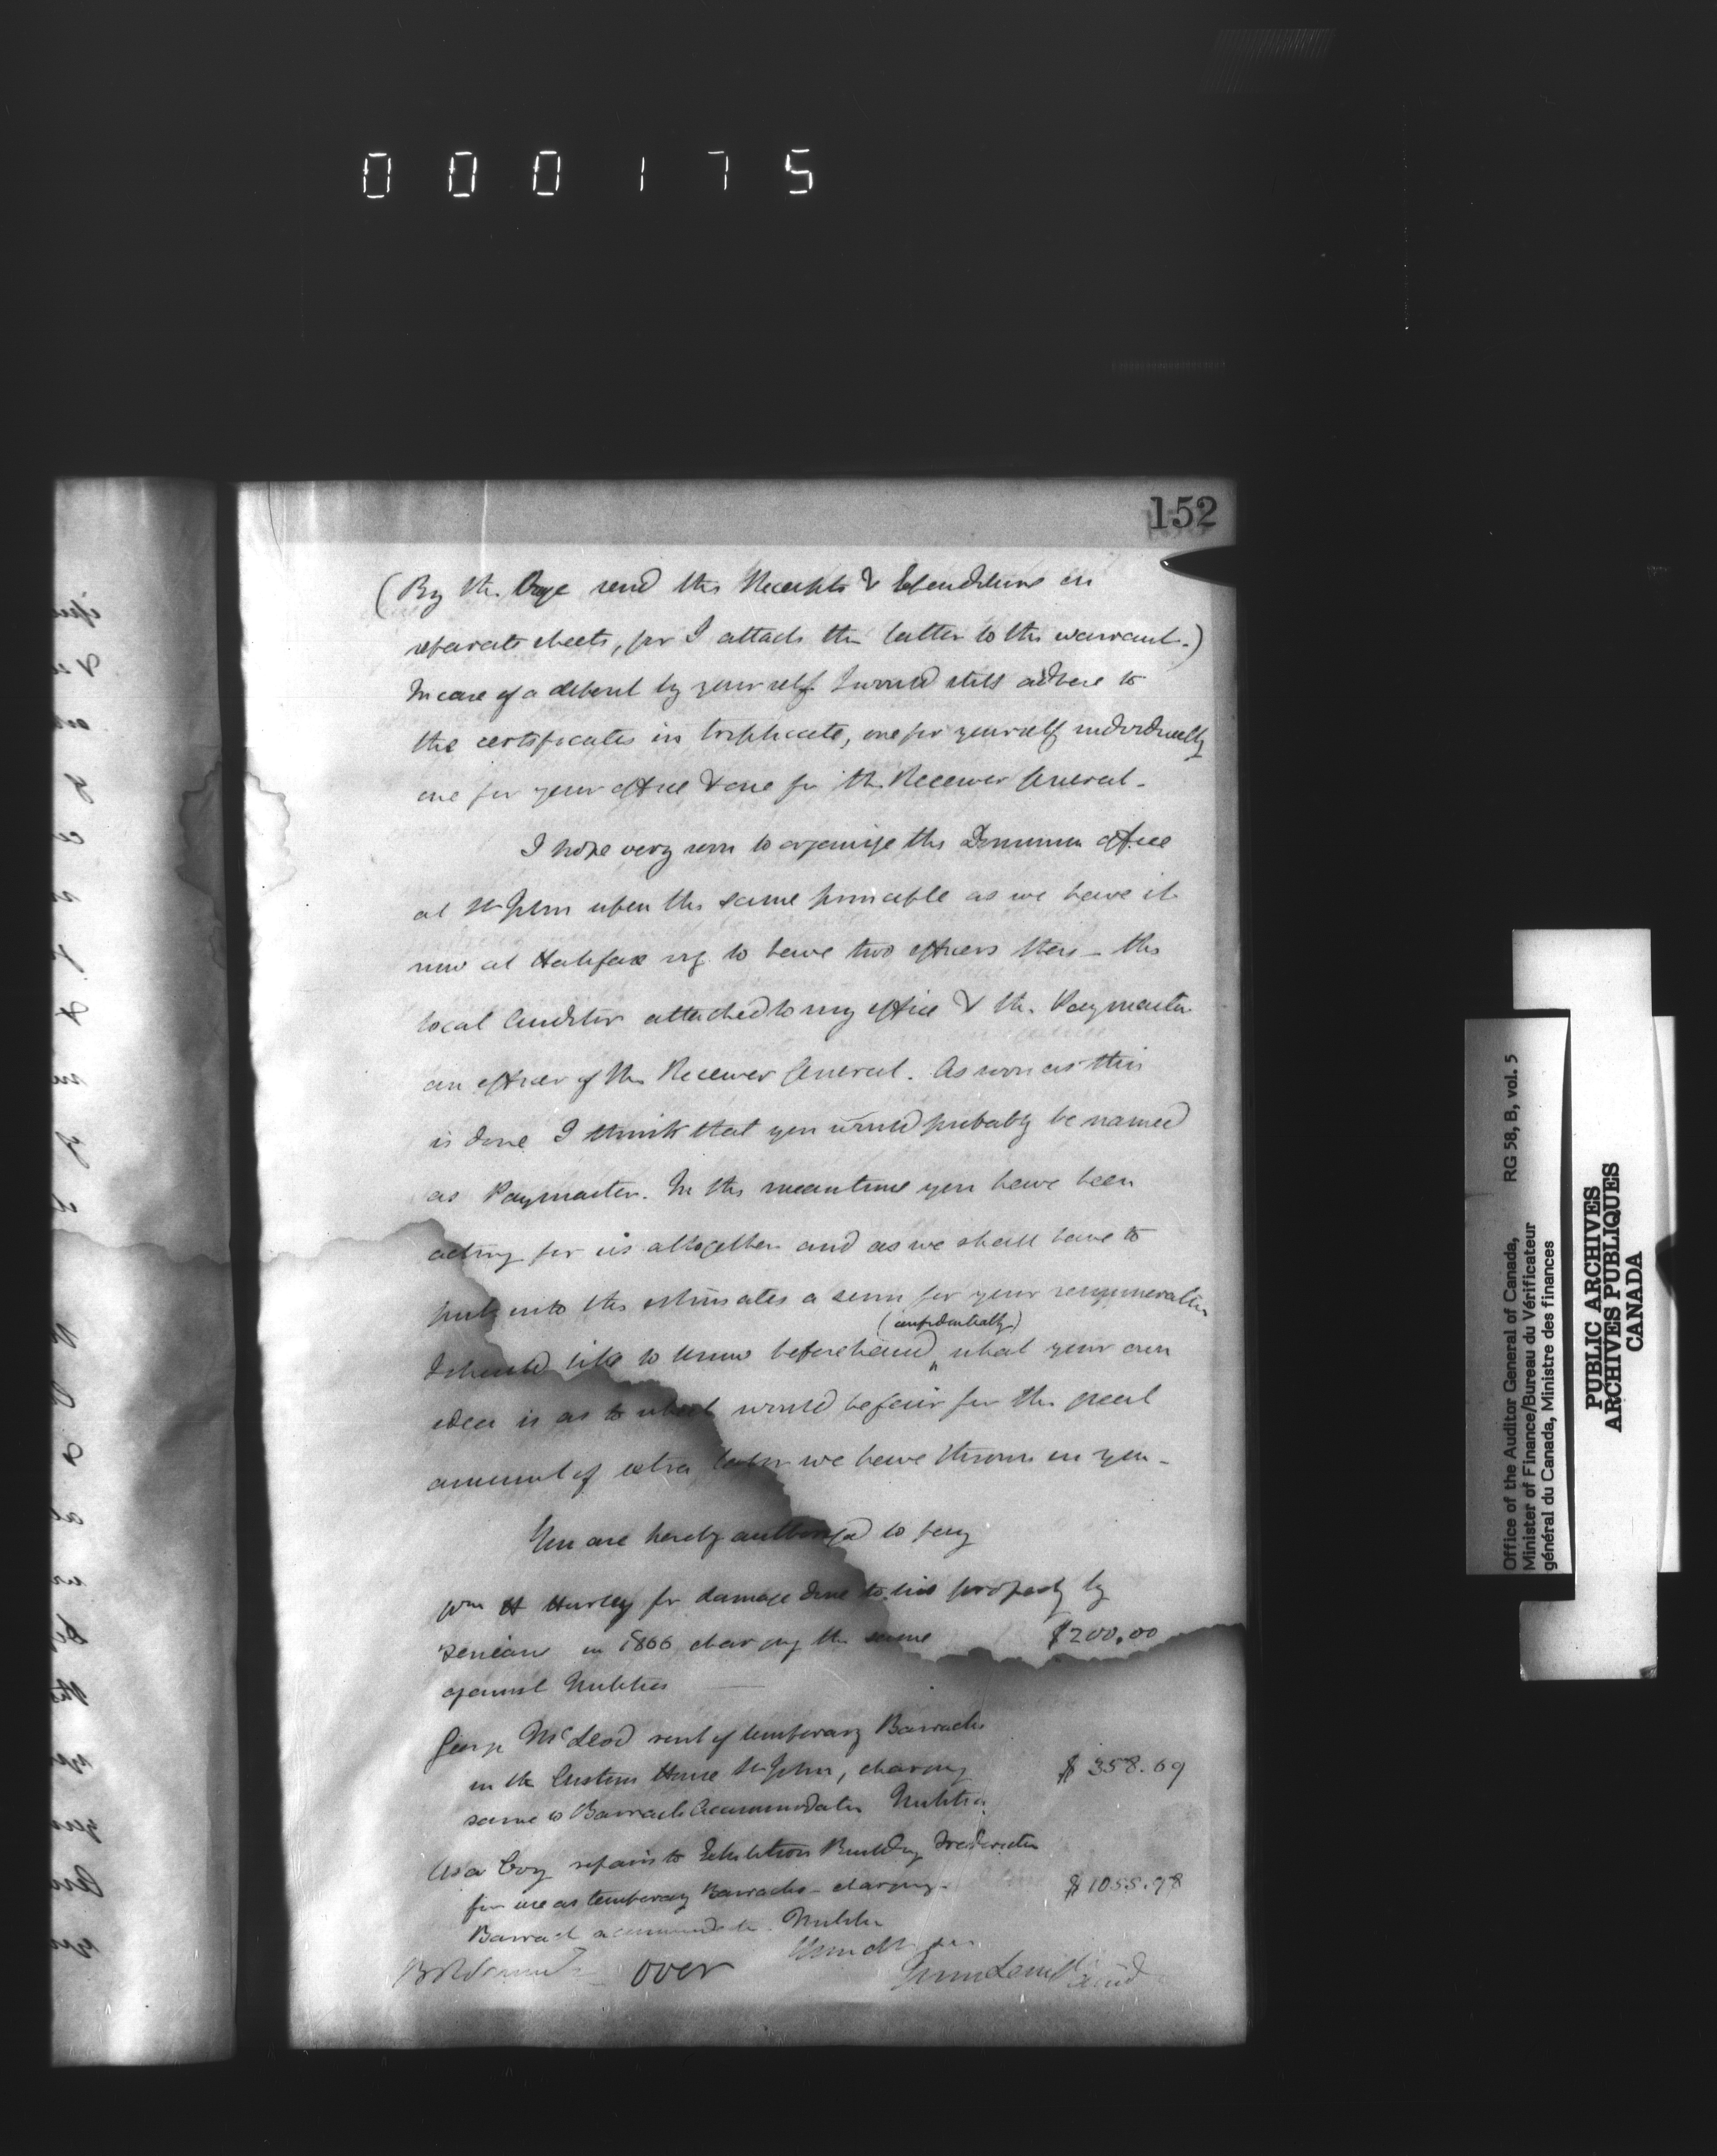 000175
152
(By the Bye send the Receipts & Expenditure on
separate sheets, for I attach the latter to the warrant.)
In case of a deposit by yourself I would still adhere to
the certificates in triplicate, one for yourself individually
one for your office & one for the Receiver General.
I hope very soon to organise the Dominion office
at St John upon the same principle as we have it
now at Halifax vig. to have two officers there - the
local Auditor attached to my office & the Paymaster
an officer of the Receiver General. As soon as this
is done I think that you would probably be named
as Paymaster. In the meantime you have been
acting for us altogether and as we shall have to
put into the estimates a sum for your remuneration
(confidentially)
I should like to know beforehand " what your own
idea is as to what would be fair for the great
amount of extra labor we have thrown on you -
You are hereby authorized to pay
Wm H Hurley for damage done to his property by
Fenians in 1866 charging the same $200.00
against Militia
George McLeod rent of temporary Barracks
in the Custom House St John, charging $358.69
same to Barrack Accommodation Militia
Asa Coy repairs to Exhibition Building Fredericton
for use as temporary Barracks - charging $1055.98
Barrack accommodation Militia
over
John Langton
Aud
Office of the Auditor General of Canada, RG 58, B, vol. 5
Minister of Finance/Bureau du Vérificateur
général du Canada, Ministre des finances
PUBLIC ARCHIVES
ARCHIVES PUBLIQUES
CANADA